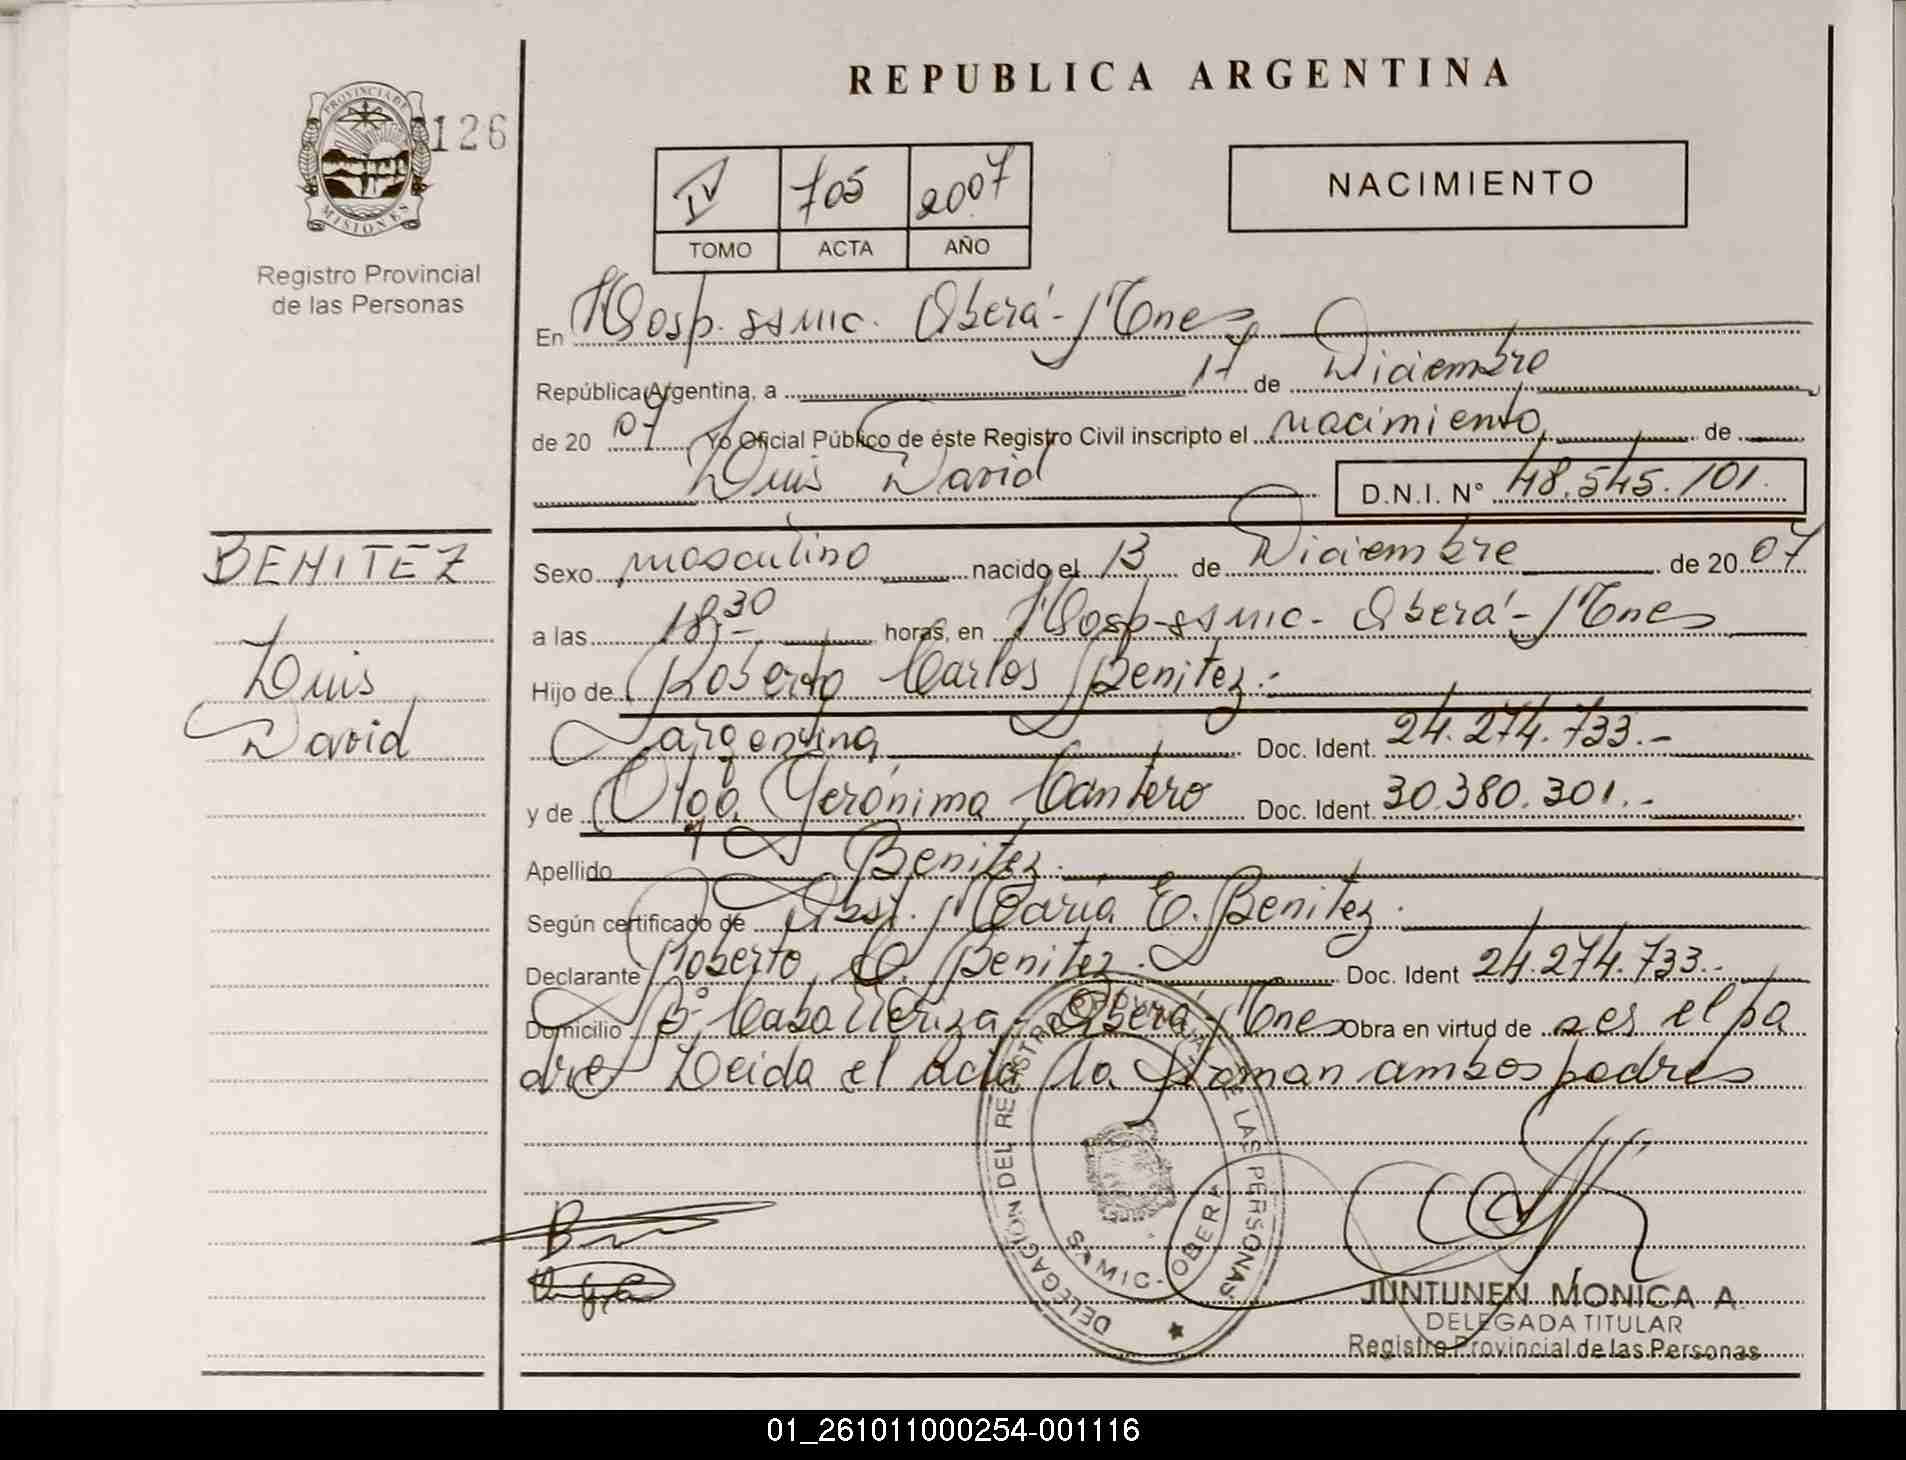 REPUBLICA ARGENTINA
PROVINCIA DE
MISIONES
126
Registro Provincial
de las Personas
IV 705 2007
TOMO ACTA AÑO
NACIMIENTO
En Hosp. SAMIC. Oberá - Mnes
República Argentina, a 17 de Diciembre
de 20 07 Yo Oficial Público de éste Registro Civil inscripto el nacimiento de
Luis David D.N.I. N° 48.545.101.
BENITEZ
Luis
David
Sexo masculino nacido el 13 de Diciembre de 20 07
a las 18,30 horas, en Hosp-SAMIC- Oberá - Mnes
Hijo de Roberto Carlos Benitez.-
argentina Doc. Ident. 24.274.733.-
y de Olga Gerónima Cantero Doc. Ident. 30.380.301.-
Apellido Benitez.
Según certificado de Obst. María E. Benitez.
Declarante Roberto C. Benitez. Doc. Ident 24.274.733.-
Domicilio B° Caballeriza - Oberá - Mnes Obra en virtud de ser el pa
dre Leida el acta la firman ambos padres
DELEGACIÓN DEL REGISTRO PROVINCIAL DE LAS PERSONAS
SAMIC - OBERA
JUNTUNEN MONICA A.
DELEGADA TITULAR
Registro Provincial de las Personas
01_261011000254-001116